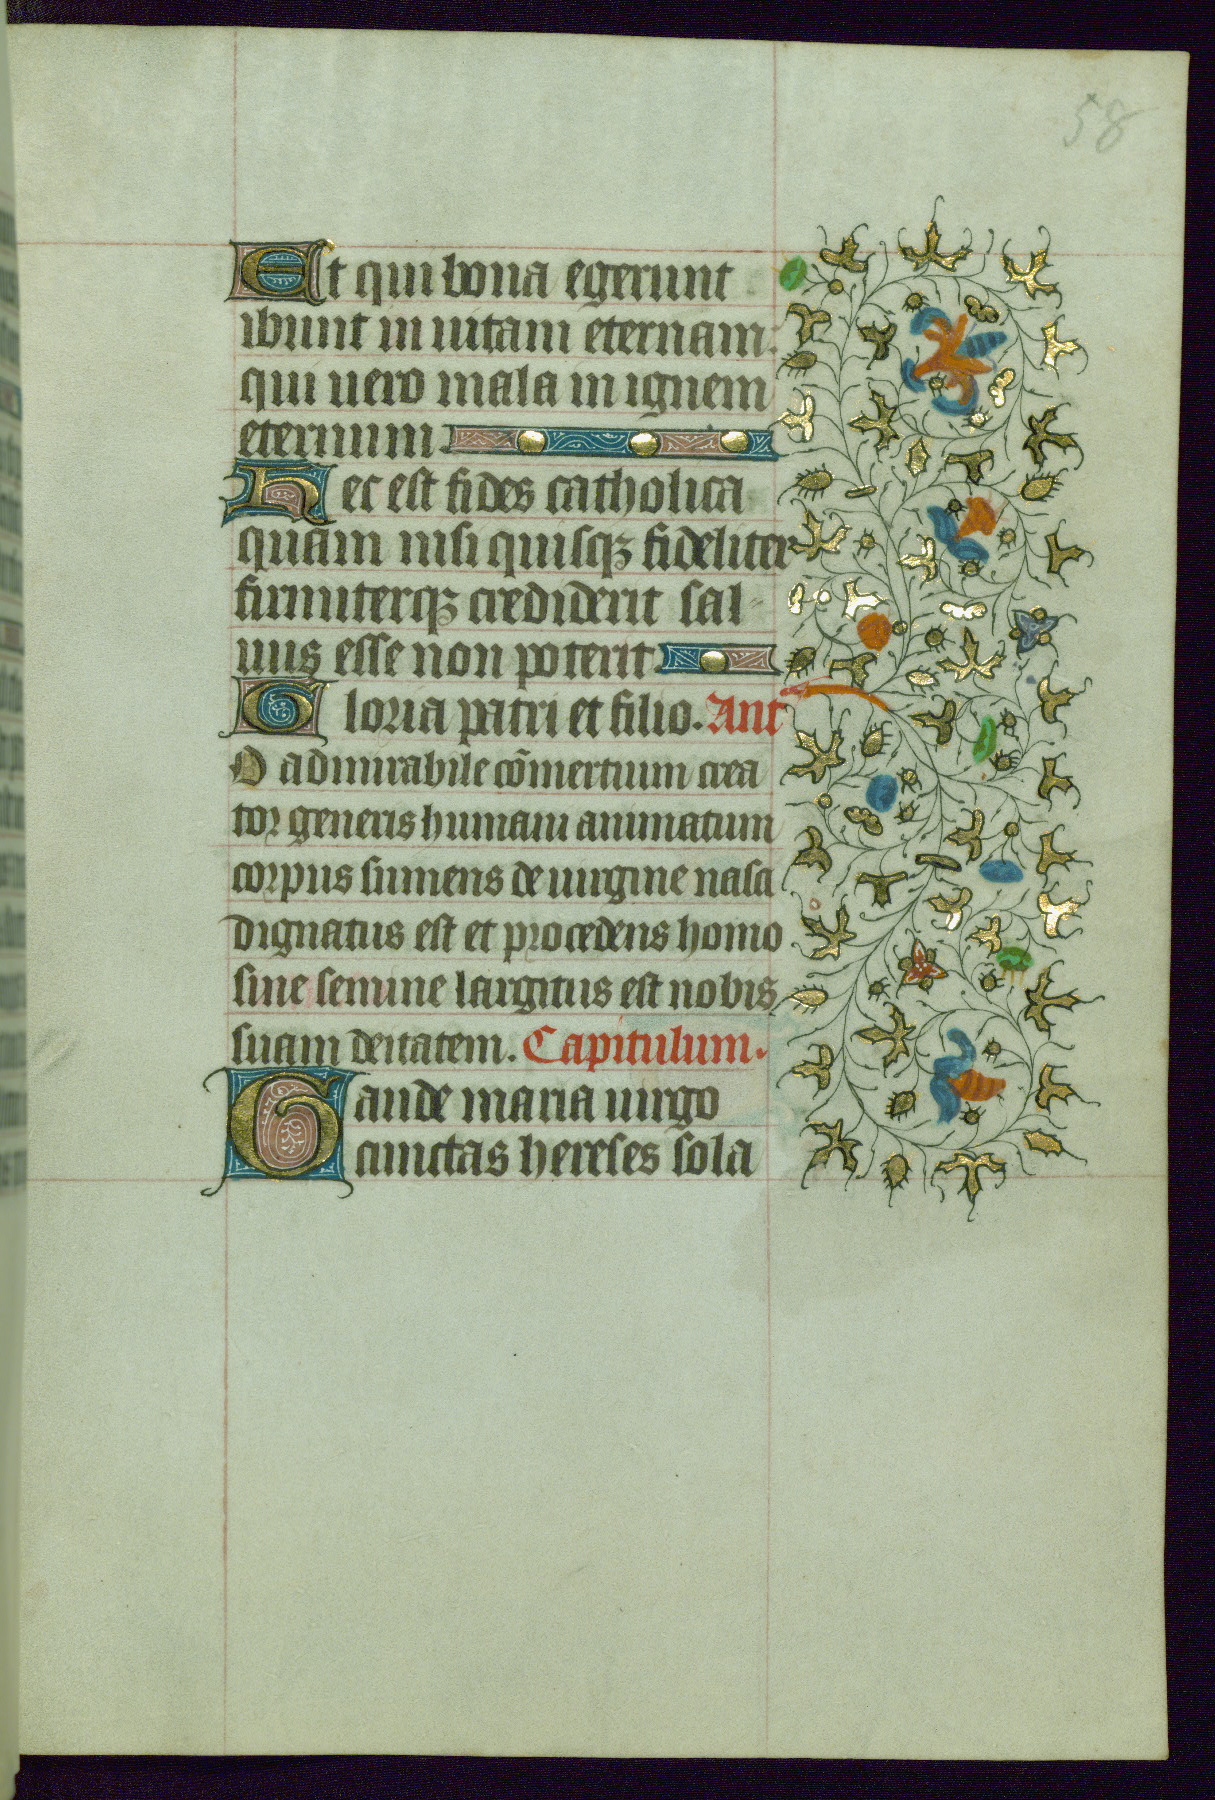 58
Et qui bona egerunt
ibunt in uitam eternam:
qui uero mala in ignem
eternum
Hec est fides catholica
quam nisi quisqꝫ fideliter
firmiterqꝫ crediderit sal-
uus esse non poterit
Gloria patri et filio. Ant
O admirabile cōmertium crea
tor generis humani animatum
corpus sumens de uirgine nasci
dignatus est et procedens homo
sine semine largitus est nobis
suam deitatem. Capitulum.
Gaude maria uirgo
cunctas hereses sola